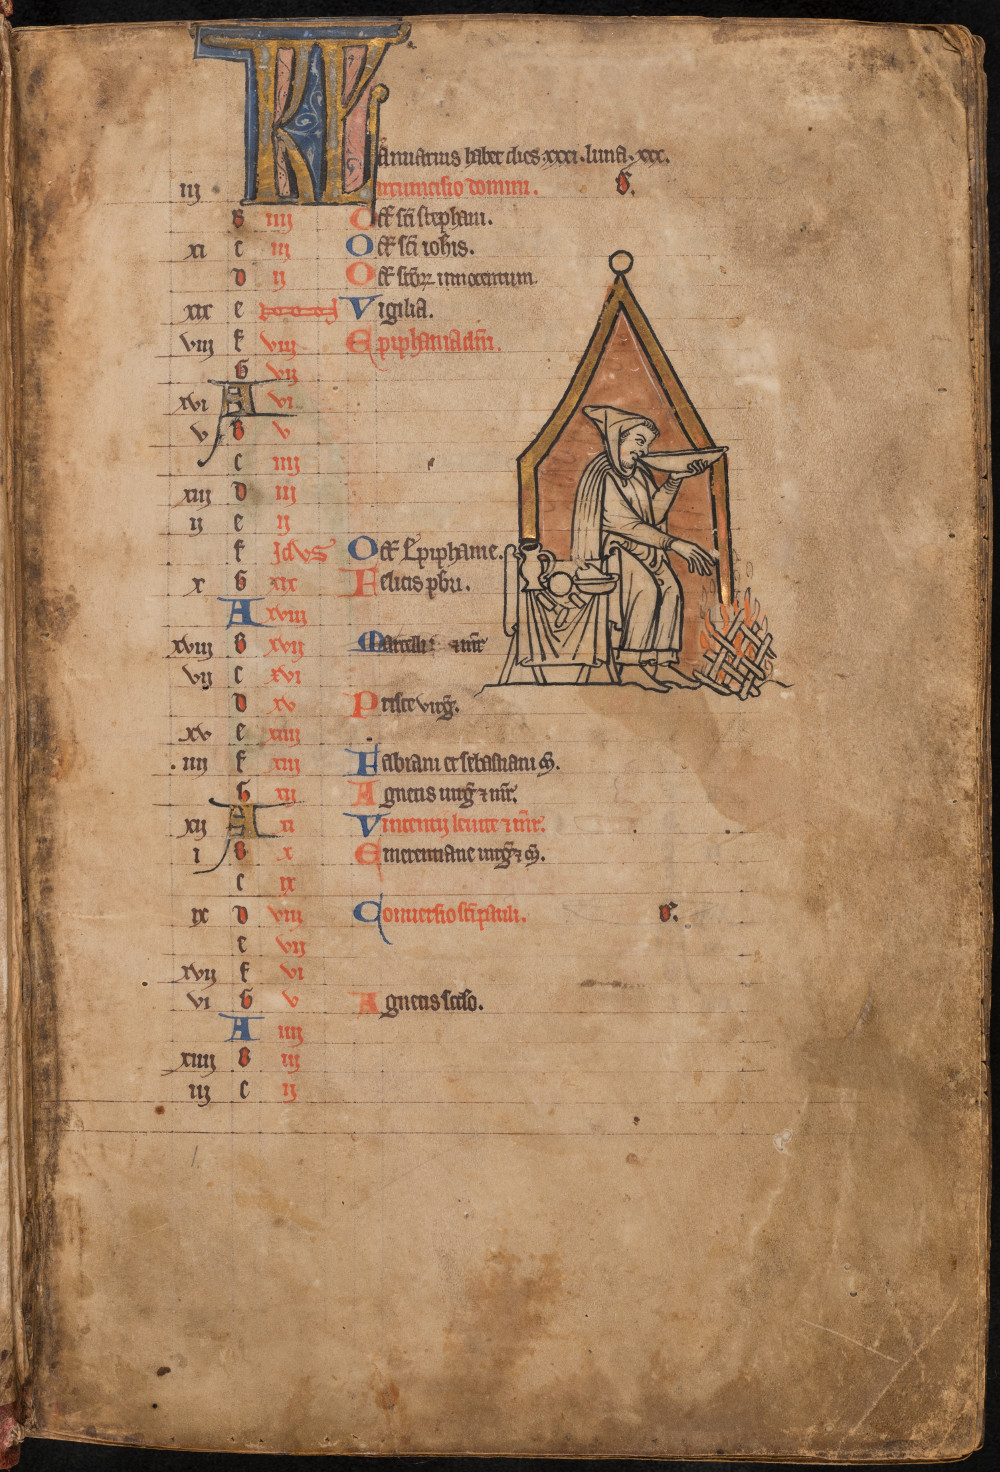 KL
Januarius habet dies xxxi. luna. xxx.
iij ircumcisio domini. S.
B iiij Oct̄ sc̄i stephani.
xi c iij Oct̄ sc̄i ioh̄is.
D ij Oct̄ sc̄oꝝ innocentum
xix e Vigilia.
viij f viij Epiphania dn̄i.
G vij
xvi A vi
v B v
c iiij
xiij D iij
ij e ij
f Idus Oct̄ Epiphanie.
x G xix Felicis pb̄ri.
A xviij
xviij B xvij Marcelli et mr̄
vij c xvi
D xv Prisce virḡ.
xv e xiiij
.iiij f xiij Fabiani et sebastiani m̄.
G xij Agnetis uirḡ ⁊ mr̄.
xij A xi Vincentij leuite ⁊ mr̄.
i B x Emerentiane uirḡ ⁊ m̄.
c ix
ix D viij Conuersio sc̄i pauli. S.
e vij
xvij f vi
vi G v Agnetis sc̄do.
A iiij
xiiij B iij
iij c ij
1.